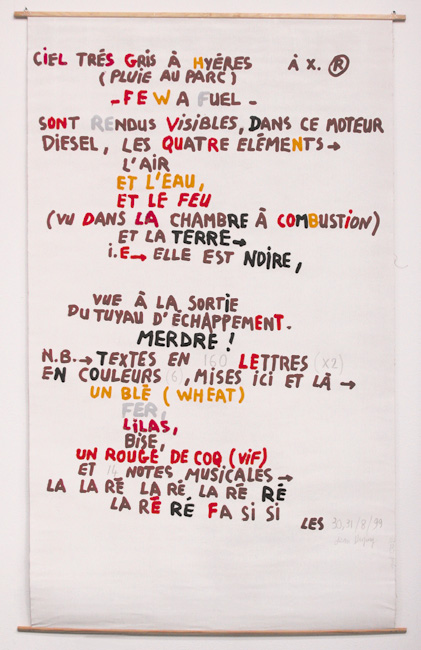 CIEL TRÉS GRIS À HYÉRES À X. ®
(PLUIE AU PARC)
- FEW A FUEL -
SONT RENDUS VISIBLES, DANS CE MOTEUR
DIESEL, LES QUATRE ELÉMENTS→
L'AIR
ET L'EAU,
ET LE FEU
(VU DANS LA CHAMBRE À COMBUSTION)
ET LA TERRE→
i.E→ ELLE EST NOIRE,
VUE À LA SORTIE
DU TUYAU D'ÉCHAPPEMENT.
MERDRE !
N.B.→ TEXTES EN 160 LETTRES (X2)
EN COULEURS (6), MISES ICI ET LÀ →
UN BLÉ (WHEAT)
FER,
LILAS,
BISE,
UN ROUGE DE COQ (VIF)
ET 14 NOTES MUSICALES→
LA LA RÉ LA RÉ LA RÉ RÉ
LA RÉ RÉ FA SI SI
LES 30,31/8/99